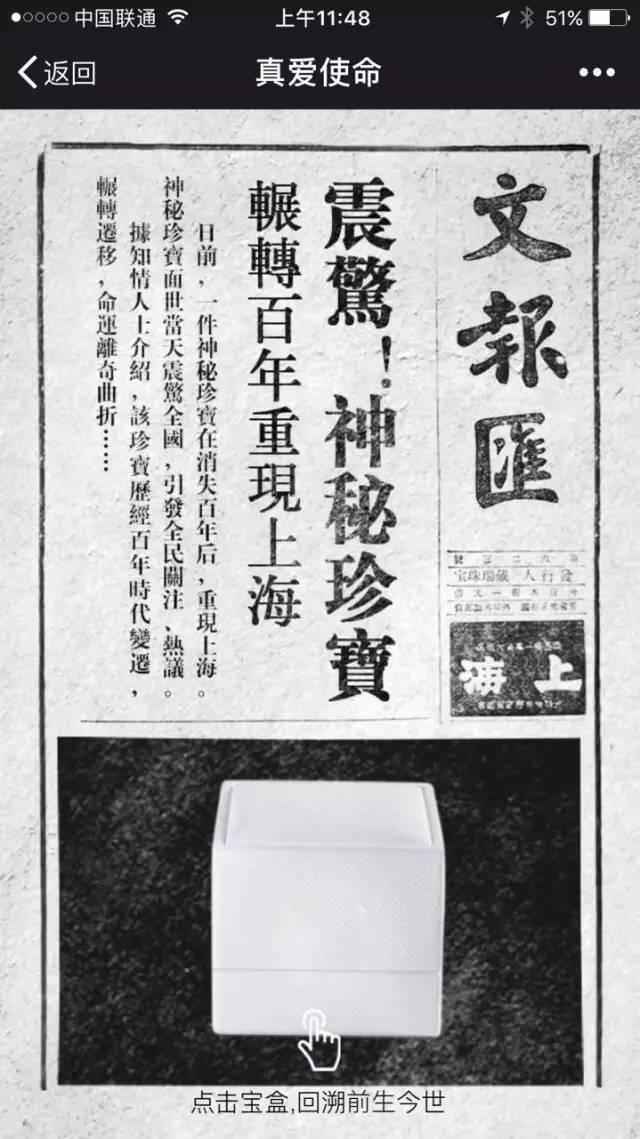 中国联通
上午11:48
51%
返回
真爱使命
文報匯
發行人 戴瑞珠宝
上海
震驚！神秘珍寶
輾轉百年重現上海
日前，一件神秘珍寶在消失百年后，重現上海。
神秘珍寶面世當天震驚全國，引發全民關注、熱議。
據知情人士介紹，該珍寶歷經百年時代變遷，
輾轉遷移，命運離奇曲折……
点击宝盒,回溯前生今世